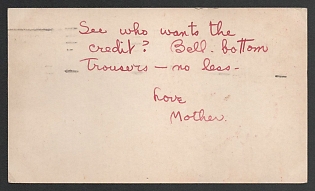 See who wants the
credit? Bell. bottom
Trousers — no less -
Love
Mother.